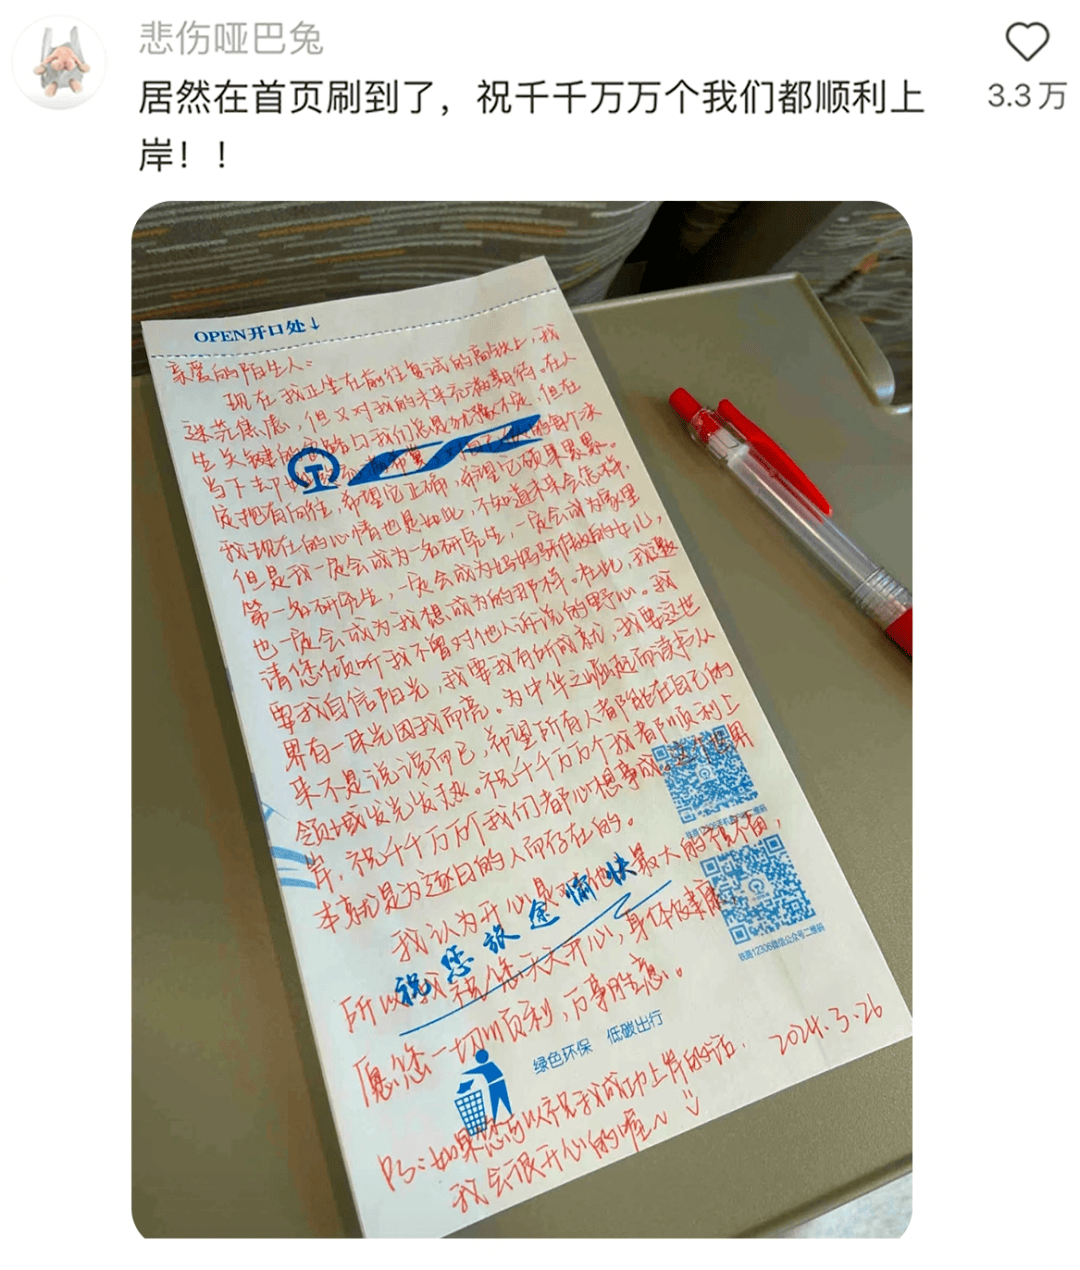 悲伤哑巴兔
居然在首页刷到了，祝千千万万个我们都顺利上
岸！！
3.3万
OPEN开口处↓
亲爱的陌生人：
现在我正坐在前往复试的高铁上，我
迷茫焦虑，但又对我的未来充满期待。在人
生关键的岔路口我们总是犹豫不定，但在
当下去的每个决
定抱有向往，希望它正确，希望它硕果累累。
我现在的心情也是如此，不知道未来会怎样，
但是我一定会成为一名研究生，一定会成为家里
第一名研究生，一定会成为妈妈骄傲的女儿，
也一定会成为我想成为的那样。在此，我
请您倾听我不曾对他人诉说的野心。我
要我自信阳光，我要我有所成就，我要这世
界有一珠光因我而亮。为中华之崛起而读书从
来不是说说而已，希望所有人都能在自己的
领域发光发热。祝千千万万个我都顺利上
岸，祝千千万万个我们都心想事成。这个世界
本就是为逐日的人而存在的。
我认为开心是对他最大的祝福，
祝您旅途愉快
所以我祝您天天开心，身体健康，
愿您一切顺利，万事胜意。
铁路12306微信公众号二维码
绿色环保 低碳出行
2024.3.26
PS：如果您可以祝我成功上岸的话，
我会很开心的喔~